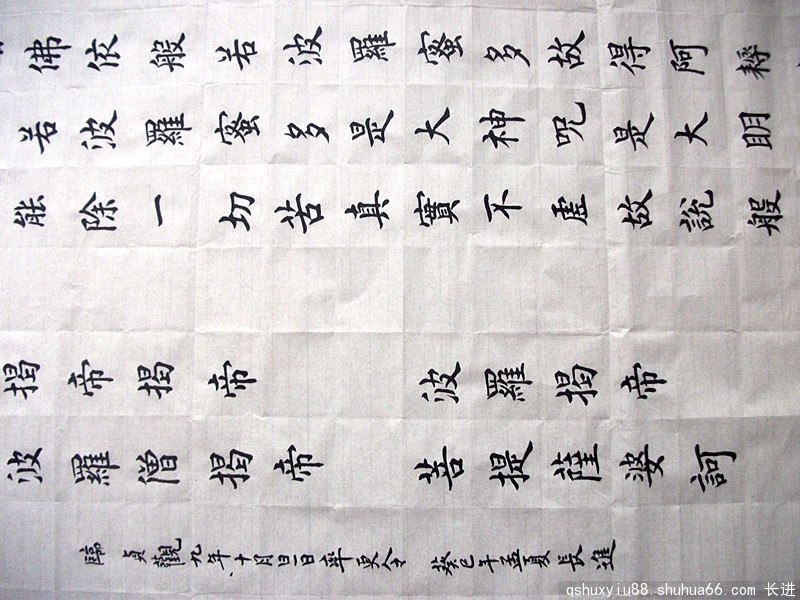 佛依般若波羅蜜多故得阿耨
若波羅蜜多是大神呪是大明
能除一切苦真實不虛故說般
揭帝揭帝 波羅揭帝
波羅僧揭帝 菩提薩婆訶
臨 貞觀九年十月旦日率更令 癸巳年孟夏長進
qshuxyiu88.shuhua66.com 长进